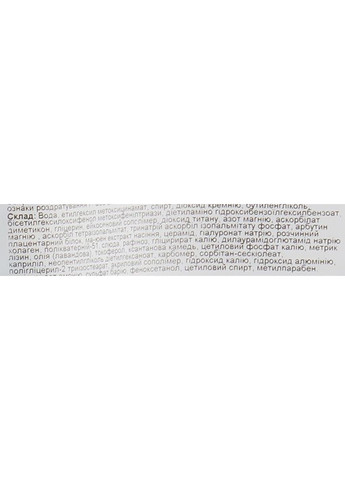 ознаки роздратування
Склад: Вода, етилгексил метоксицинамат, спирт, діоксид кремнію, бутиленгліколь,
бісетилгексилоксифенол метоксифенілтриази, діетиламіно гідроксибензоілгексилбензоат
диметикон, гліцерин, вікорновий сополімер, діоксид титану, азот магнію, аскорбідат
магнію , аскорбіл тетраізопальмітат, тринатрій аскорбіл ізопальмітату фосфат, арбутин
плацентарний білок, насіння, церамід, гіалуронат натрію, розчинний
колаген, полікватерній-51, слюда, рафіноз, гліциризат калію, дилаурамідоглютамід натрію
лізин, олія (лаванда), токоферол, ксантанова камедь, цетиловий фосфат калію, метрик
каприліл, неопентилгліколь діетилгексаноат, карбомер, сорбітан-сесквіолеат,
полігліцерил-2 триізостеарат, акриловий сополімер, гідроксид калію, гідроксид алюмінію,
фосфат барію, феноксетанол, цетиловий спирт, метилпарабен